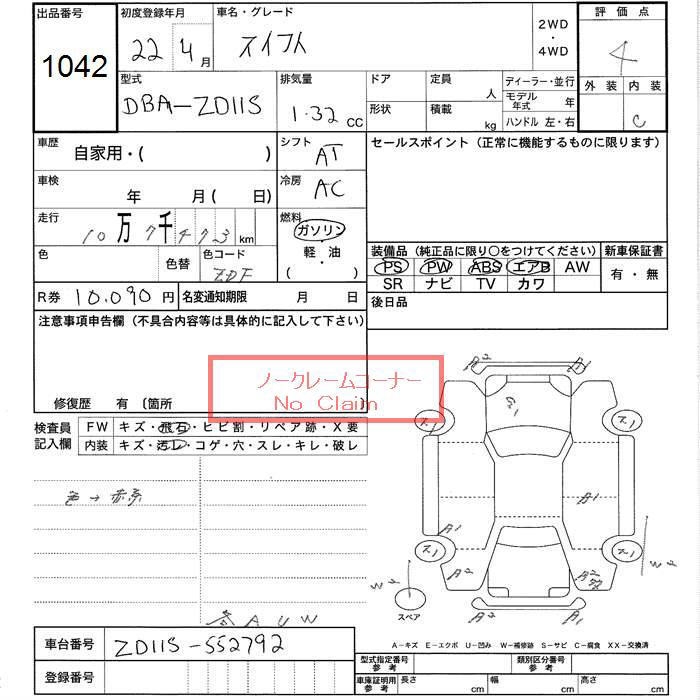 出品番号 初度登録年月 車名・グレード 2WD ・ 4WD 評価点
1042 22 4月 スイフト 4
型式 排気量 ドア 定員 人 ディーラー・並行 外装 内装
DBA-ZD11S 1.32 CC 形状 積載 kg モデル年式 年 C
ハンドル 左・右
車歴 自家用・( ) シフト AT セールスポイント(正常に機能するものに限ります)
車検 年 月( 日) 冷房 AC
走行 10万 7千 4 7 3 km 燃料 ガソリン ・ 軽・油 ( )
色 色替 色コード ZDF
装備品(純正品に限り○をつけてください) 新車保証書
PS PW ABS エアB AW 有・無
SR ナビ TV カワ
R券 10,090円 名変通知期限 月 日 後日品
注意事項申告欄(不具合内容等は具体的に記入して下さい)
ノークレームコーナー
No Claim
修復歴 有〔箇所 〕
検査員記入欄 FW キズ・飛石・ヒビ割・リペア跡・X要
内装 キズ・汚レ・コゲ・穴・スレ・キレ・破レ
色→赤系
各AUW
A2 A1
G1
ス1 ス1
A1 A1
ス1 ス1
A2 A2
W2 W2
スペア
A2 A1
A-キズ E-エクボ U-凹み W-補修跡 S-サビ C-腐食 XX-交換済
車台番号 ZD11S-552792
登録番号
型式指定番号 参考 類別区分番号 参考
車庫証明用 参考 長さ cm 幅 cm 高さ cm